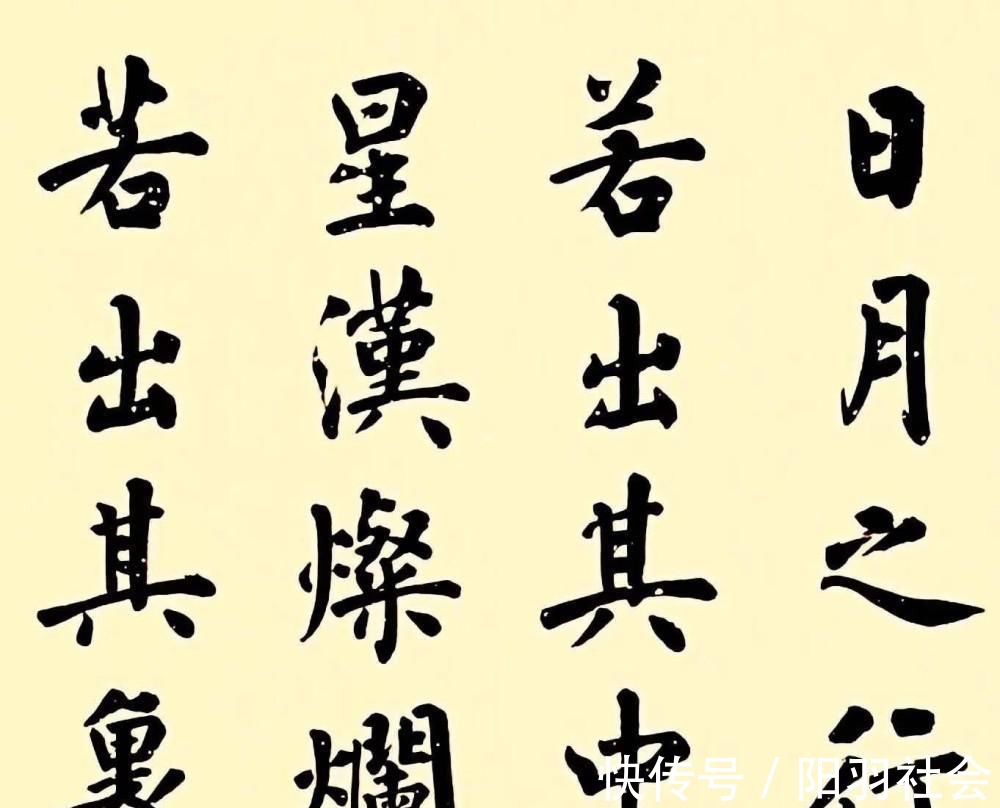 日月之行
若出其中
星漢燦爛
若出其裏
快传号 / 阳羽社会